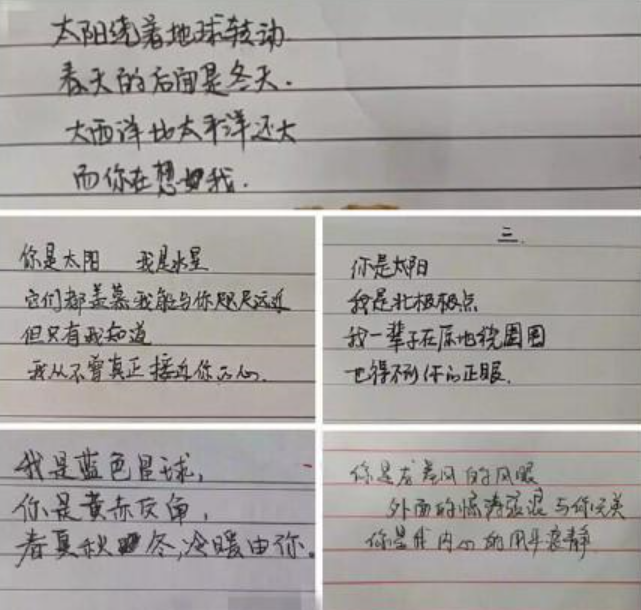 太阳绕着地球转动
春天的后面是冬天.
大西洋比太平洋还大
而你在想我.
你是太阳 我是水星
它们都羡慕我能与你咫尺远近
但只有我知道
我从不曾真正接近你的心.
三.
你是太阳
我是北极极点
我一辈子在原地绕圈圈
也得不到你的正眼.
我是蓝色星球,
你是黄赤交角,
春夏秋冬,冷暖由你.
你是龙卷风的风眼
外面的惊涛骇浪与你无关
你是我内心的用平静